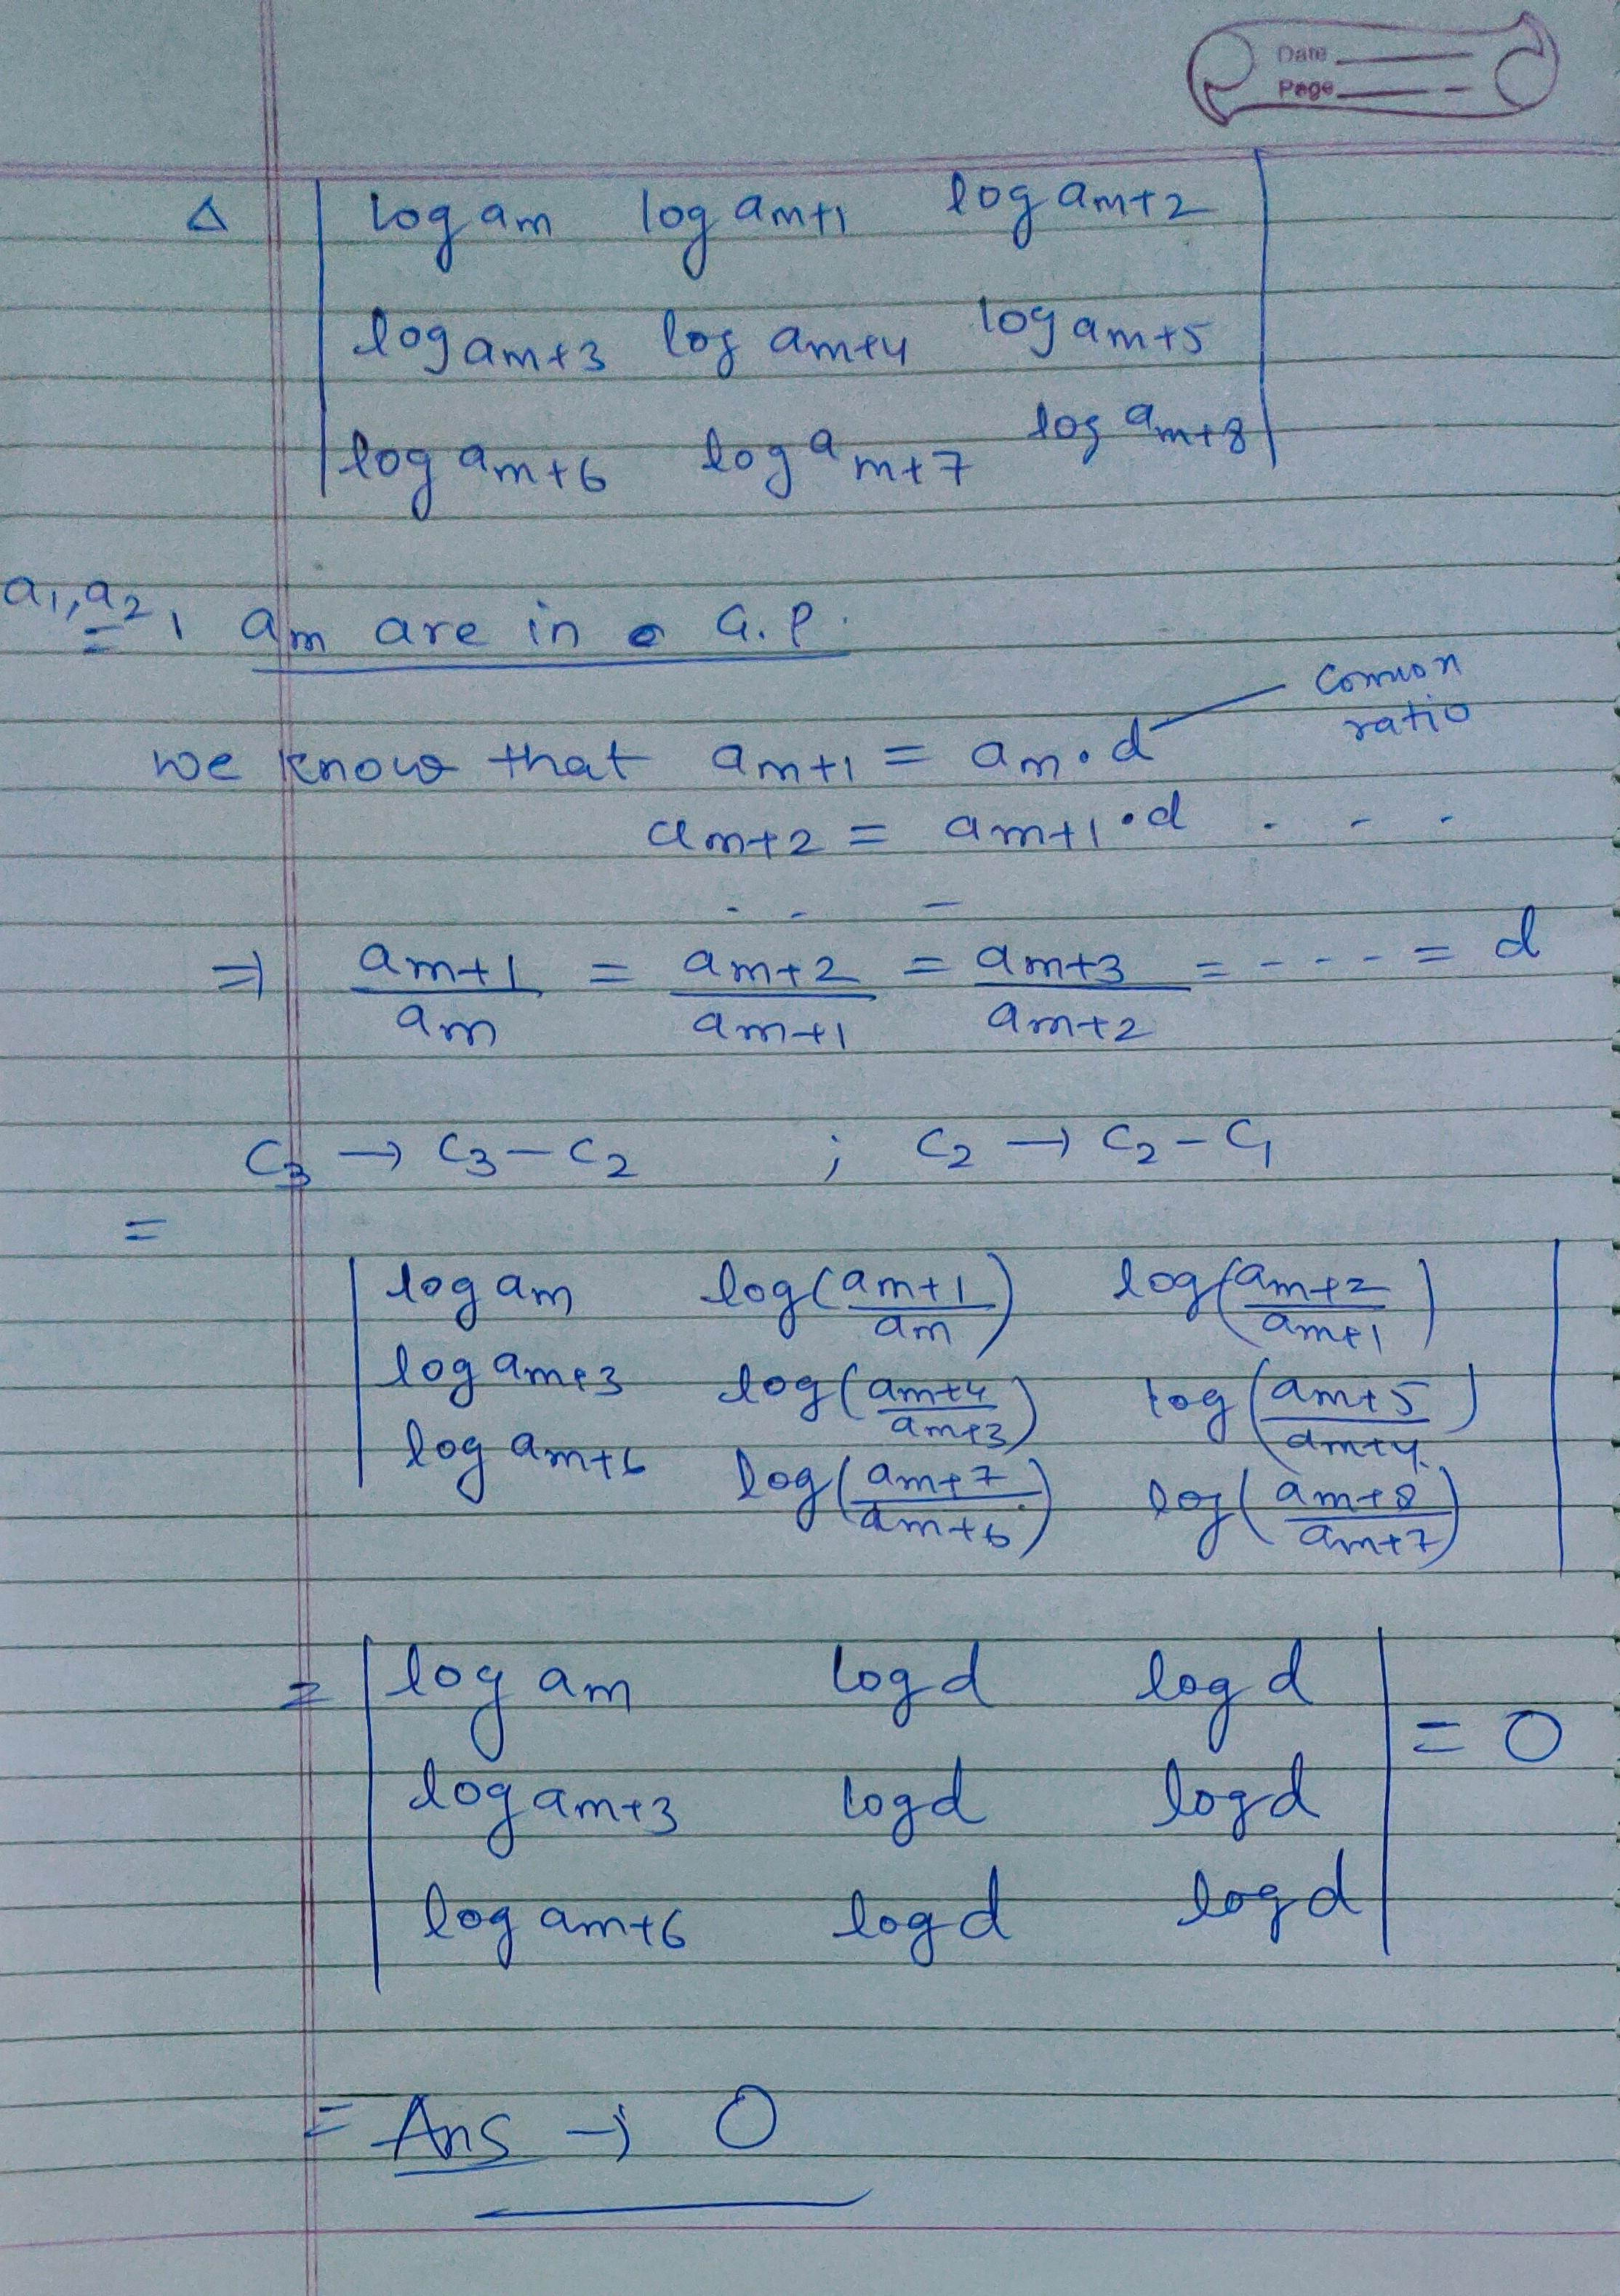 Date
Page
Δ | log am log am+1 log am+2 |
| log am+3 log am+4 log am+5 |
| log am+6 log am+7 log am+8 |
a1, a2, am are in a G.P.
we know that am+1 = am . d comon ratio
am+2 = am+1 . d . - -
. - -
⇒ am+1/am = am+2/am+1 = am+3/am+2 = - - - - = d
C3 → C3 - C2 ; C2 → C2 - C1
=
| log am log(am+1/am) log(am+2/am+1) |
| log am+3 log(am+4/am+3) log(am+5/am+4) |
| log am+6 log(am+7/am+6) log(am+8/am+7) |
= | log am log d log d | = 0
| log am+3 log d log d |
| log am+6 log d log d |
= Ans → 0